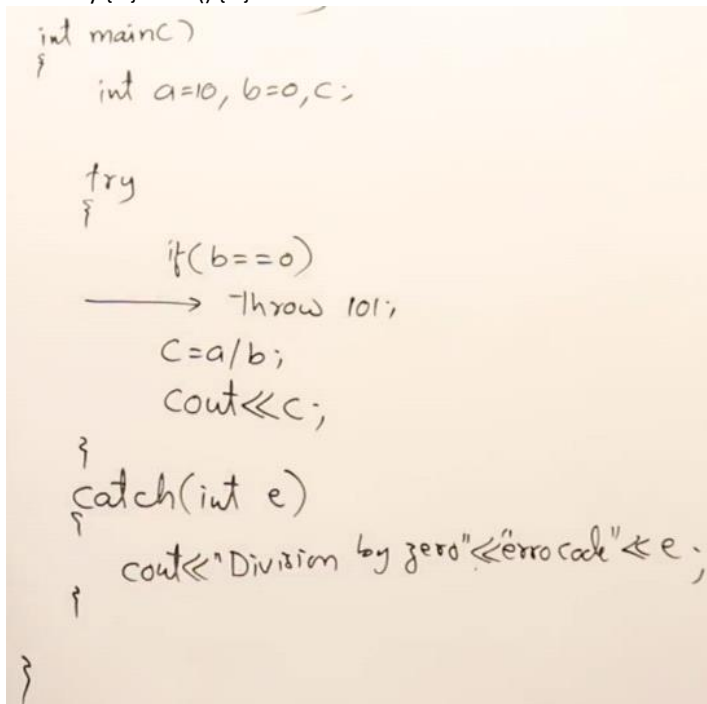 int main()
{
int a=10, b=0, c;
try
{
if(b==0)
Throw 101;
C=a/b;
Cout<<c;
}
catch(int e)
{
cout<<"Division by zero"<<"erro code"<<e;
}
}